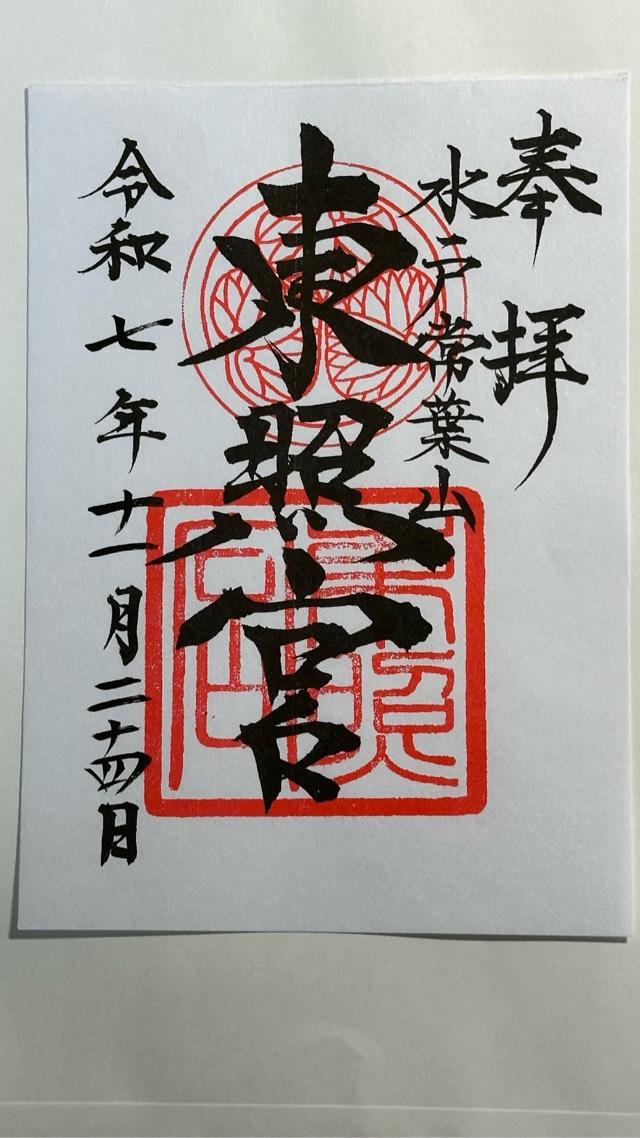 奉拝
水戸常葉山
東照宮
令和七年十一月二十四日
東照宮